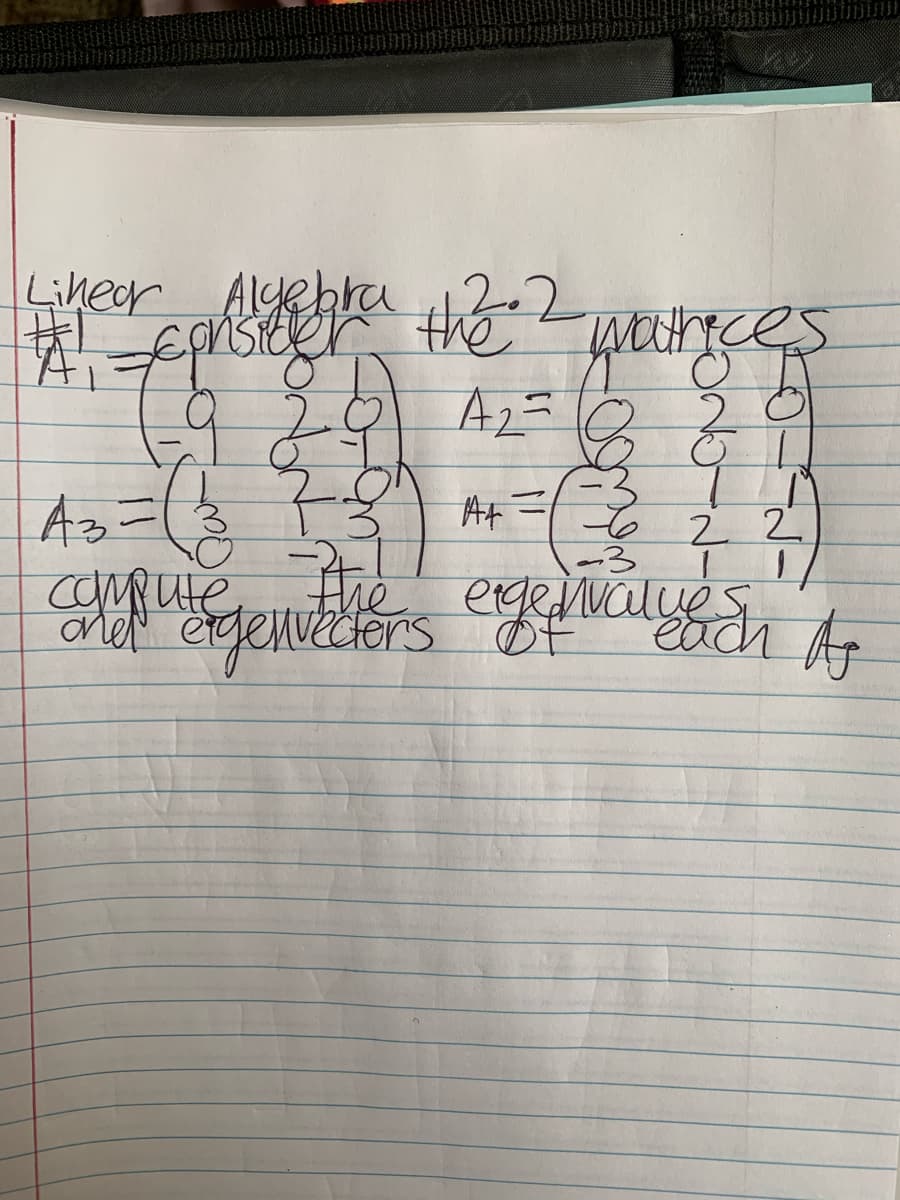 Linear Algebra 2.2
#1 consider the matrices
A1 = ( 1 0 1
0 2 0
-1 0 -1 )
A2 = ( 1 0 1
0 2 0
0 0 1 )
A3 = ( 1 2 0
3 1 3
0 -2 1 )
A4 = ( -3 1 1
-6 2 2
-3 1 1 )
compute the eigenvalues
and eigenvectors of each Aj